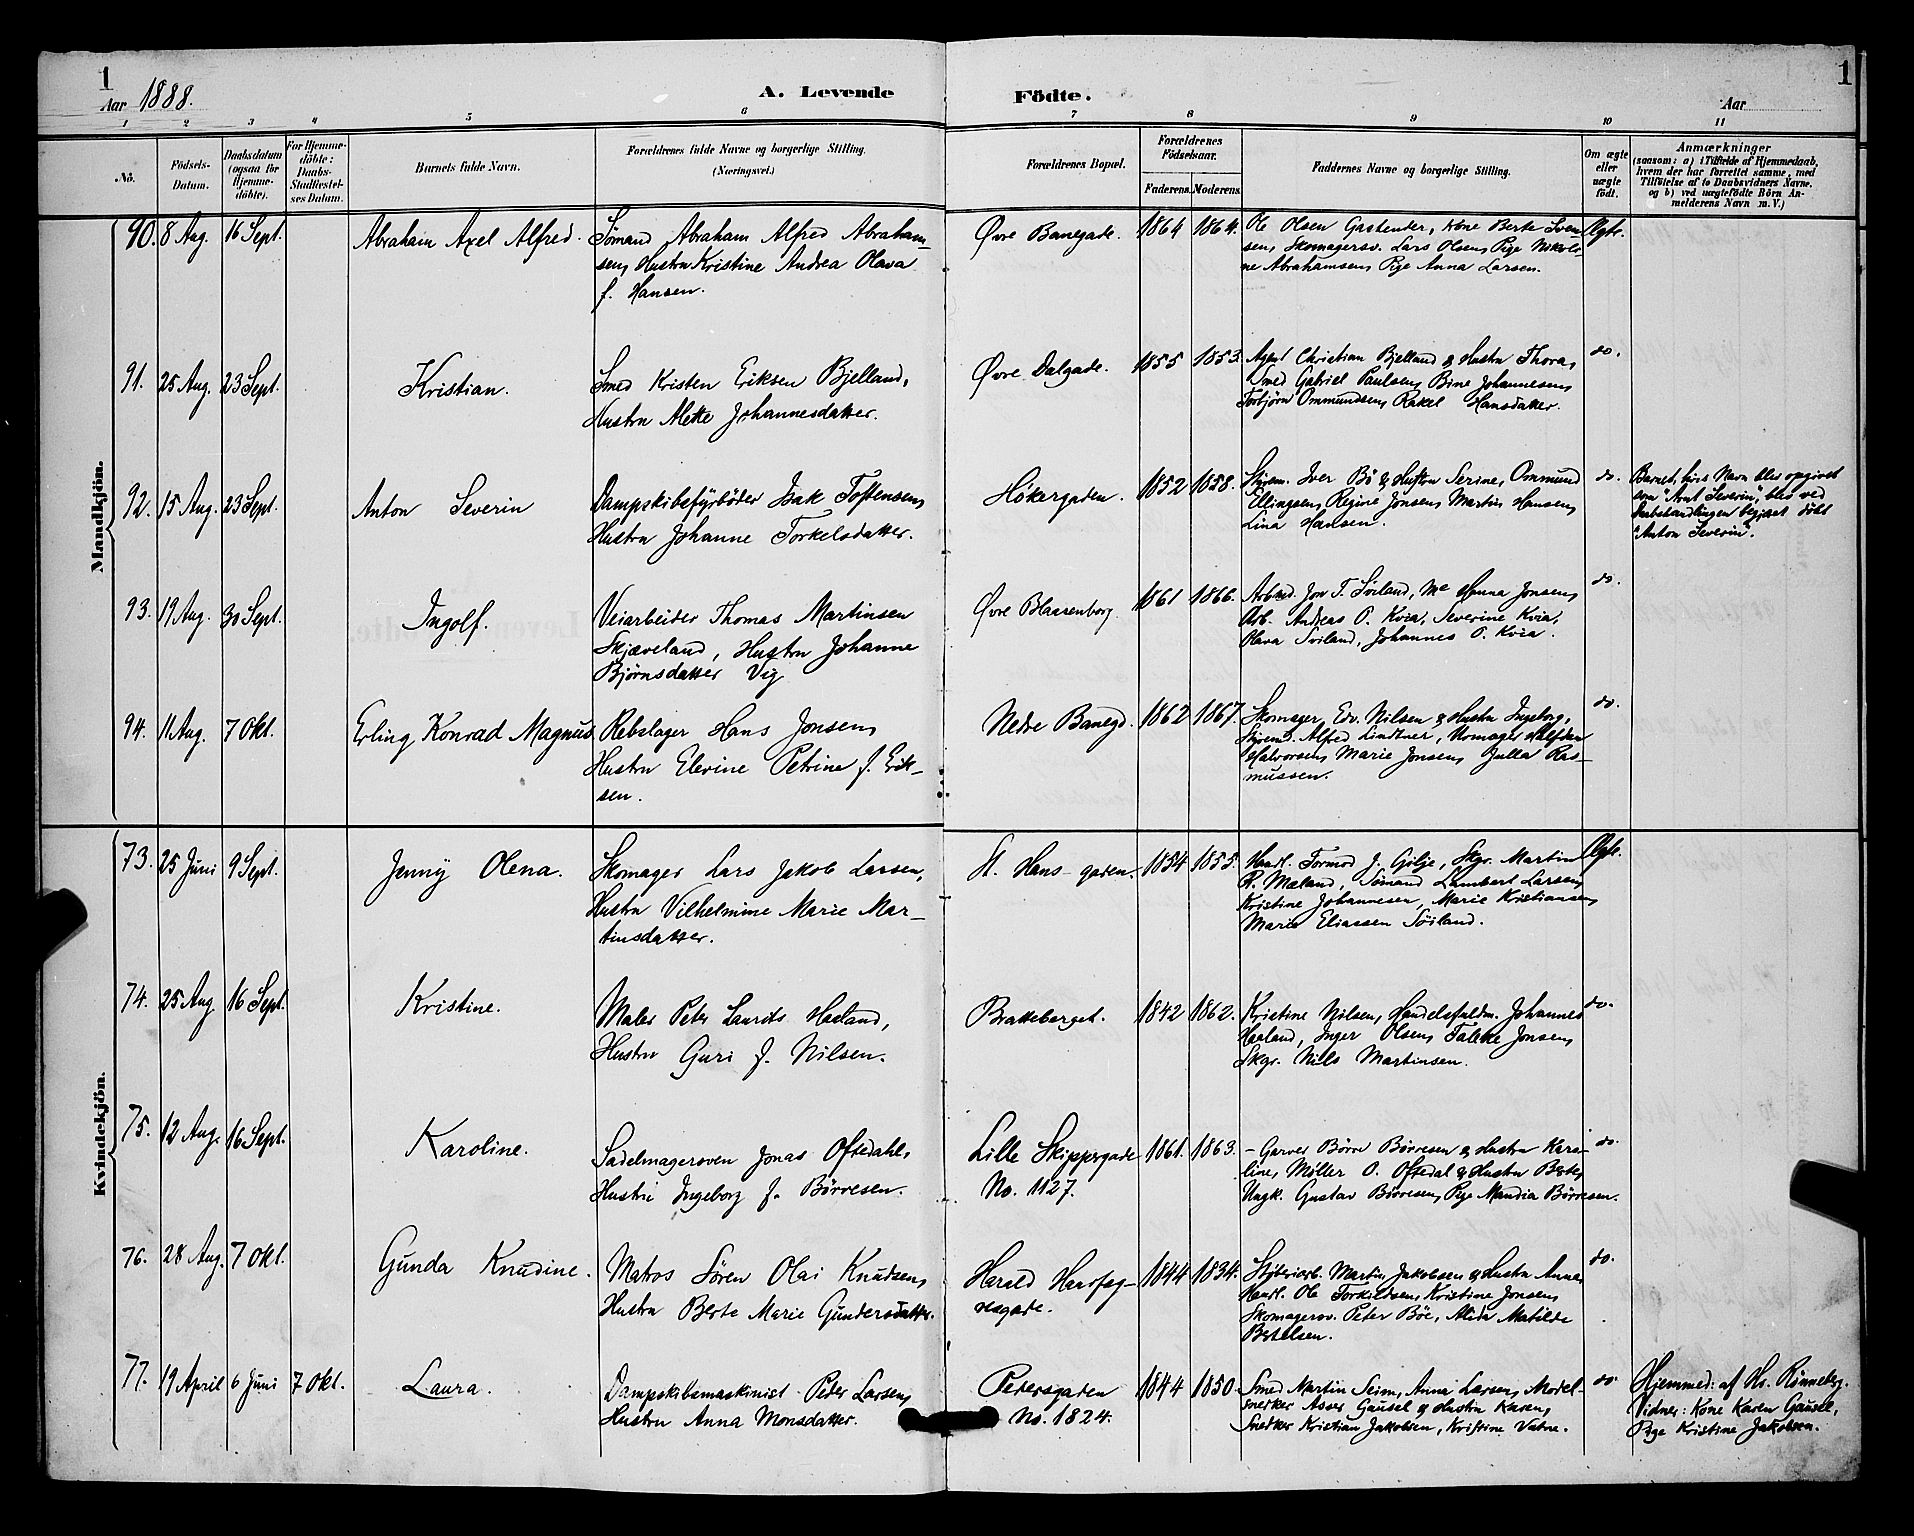 1
Aar 1888.
A. Levende
Födte.
Aar
1
1 2 3 4 5 6 7 8 9 10 11
No.
Födsels-
Datum.
Daabsdatum
(ogsaa for
Hjemme-
döbte).
For Hjemme-
döbte:
Daabs-
Stadfæstel-
ses Datum.
Barnets fulde Navn.
Forældrenes fulde Navne og borgerlige Stilling.
(Næringsvei.)
Forældrenes Bopæl.
Forældrenes
Födselsaar.
Faderens. Moderens.
Faddernes Navne og borgerlige Stilling.
Om ægte
eller
uægte
født.
Anmærkninger
(saasom: a) i Tilfælde af Hjemmedaab,
hvem der har forrettet samme, med
Tilföielse af to Daabsvidners Navne.
og b) ved uægtefödte Börn An-
melderens Navn m. V.)
Mandkjön.
90. 8 Aug. 16 Sept.
Abraham Axel Alfred.
Sømand Abraham Alfred Abraham-
sen, Hustru Kristine Andrea Olava
f. Hansen.
Øvre Banegade. 1864 1864.
Ole Olsen Gastender, Kone Berte Sven-
sen, Skomagersv. Lars Olsen, Pige Nikoli-
ne Abrahamsen, Pige Anna Larsen.
Ægte.
91. 25 Aug. 23 Sept.
Kristian.
Smed Kristen Eriksen Bjelland,
Hustru Mette Johannesdatter.
Øvre Dalgade. 1855 1853.
Agent Christian Bjelland & Hustru Thora,
Smed Gabriel Paulsen, Bine Johannesen,
Torbjørn Ommundsen, Rakel Hansdatter.
do.
92. 15 Aug. 23 Sept.
Anton Severin
Dampskibsfyrbøder Isak Toftensen,
Hustru Johanne Torkelsdatter.
Høkergaden. 1852 1858.
Skjæm. Iver Bö & Hustru Serine, Ommund
Ellingsen, Regine Jonsen, Martin Hansen,
Lina Hansen.
do.
Barnet, hvis Navn blev opgivet
som "Arnt Severin", blev ved
Daabshandlingen begjært døbt
"Anton Severin".
93. 19 Aug. 30 Sept.
Ingolf.
Veiarbeider Thomas Martinsen
Skjæveland, Hustru Johanne
Bjørnsdatter Vig
Øvre Blaasenborg 1861 1866.
Arbmd. Jon T. Söiland, Me Hanna Jonsen,
Arb. Andreas O. Kvia, Severine Kvia,
Olava Soiland, Johannes O. Kvia.
do.
94. 11 Aug. 7 Okt.
Erling Konrad Magnus.
Rebslager Hans Jonsen,
Hustru Elevine Petrine f. Erik-
sen.
Nedre Banegd. 1862 1867.
Skomager Edv. Nilsen & Hustru Ingeborg,
Alfred Lindtner,
Halvorsen, Marie Jonsen, Julla Ras-
mussen.
do.
Kvindekjön.
73. 25 Juni 9 Sept.
Jenny Olena.
Skomager Lars Jakob Larsen,
Hustru Vilhelmine Marie Mar-
tinsdatter.
St. Hans-gaden. 1854 1855.
Haandl. Tormod J. Gilje, Skgr. Martin
R. Mæland, Sömand Lambert Larsen,
Kristine Johannesen, Marie Kristiansen,
Marie Eliassen Söiland.
Ægte.
74. 25 Aug 16 Sept.
Kristine.
Maler Peter Laurits Haaland,
Hustru Guri f. Nilsen.
Bratteberget. 1842 1862.
Kristine Nilsen, Handelsfuldm. Johannes
Haaland, Inger Olsen, Taletke Jonsen,
Skgr. Nils Martinsen.
do.
75. 12 Aug. 16 Sept.
Karoline.
Sadelmagersven Jonas Oftedahl,
Hustru Ingeborg f. Børresen.
Lille Skippergade
No. 1127.
1861. 1863.
- Garver Börre Börresen & Hustru Karo-
line, Møller O. Oftedal & Hustru Berte,
Ungk. Gustav Börresen, Pige Mandia Börresen.
do.
76. 28 Aug. 7 Okt.
Gunda Knudine.
Matros Sören Olai Knudsen,
Hustru Berte Marie Gundersdatter.
Harald Haarfag-
resgade.
1844 1834.
Støberiarb. Martin Jakobsen & Hustru Anne,
Handl. Ole Torkildsen, Kristine Jonsen,
Skomagersv. Peter Böe, Alida Matilde
Bertelsen.
do.
77. 19 April 6 Juni 7 Okt.
Laura.
Dampskibsmaskinist Peder Larsen,
Hustru Anna Monsdatter.
Pedersgaden
No. 1824.
1844 1850
Smed Martin Seim, Anna Larsen, Model-
snedker Asser Gausel & Hustru Karen,
Snedker Kristian Jakobsen, Kristine Vatne.
do.
Hjemmed: af Hr. Rönneberg.
Vidner: Kone Karen Gausel,
Pige Kristine Jakobsen.